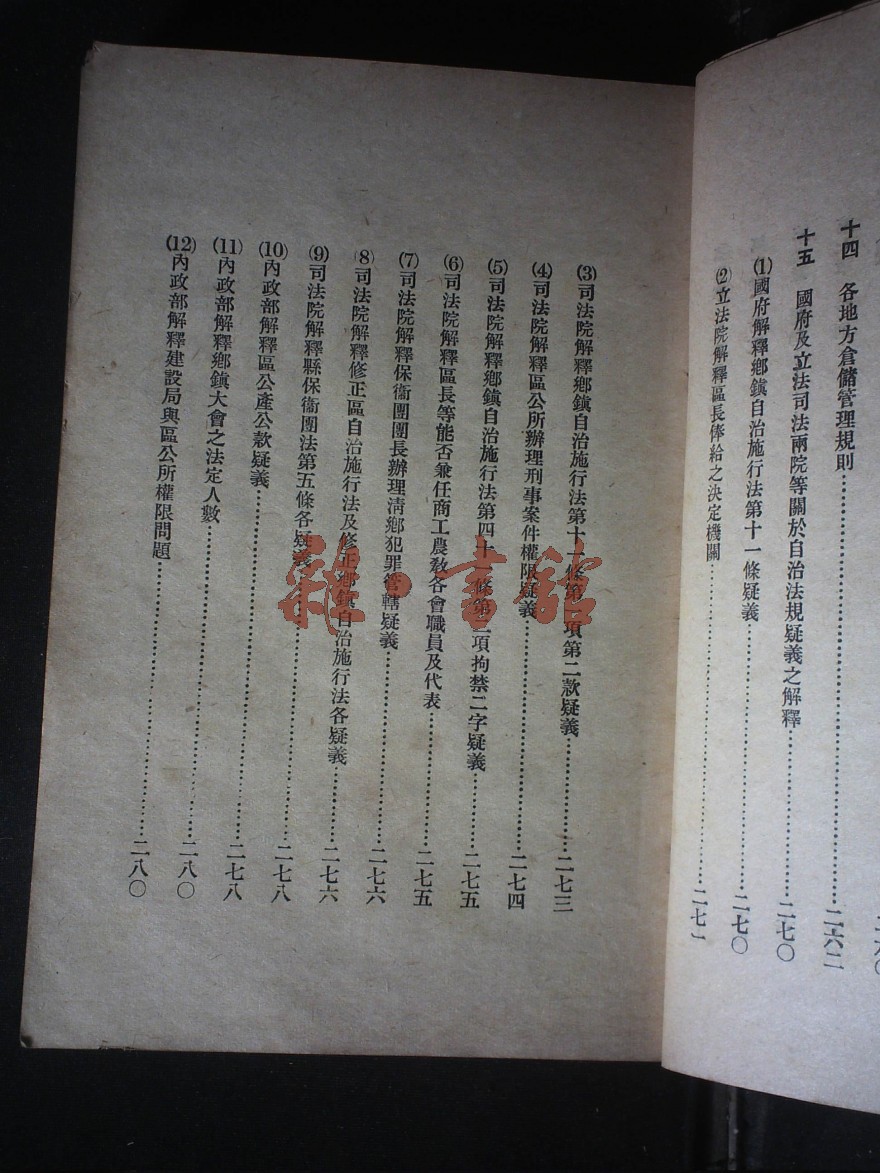 十四　各地方倉儲管理規則……二六二
十五　國府及立法司法兩院等關於自治法規疑義之解釋……二七〇
(1)國府解釋鄉鎮自治施行法第十一條疑義……二七〇
(2)立法院解釋區長俸給之決定機關……二七一
(3)司法院解釋鄉鎮自治施行法第十一條第二項第二款疑義……二七三
(4)司法院解釋區公所辦理刑事案件權限疑義……二七四
(5)司法院解釋鄉鎮自治施行法第四十一條第二項拘禁二字疑義……二七五
(6)司法院解釋區長等能否兼任商工農敎各會職員及代表……二七五
(7)司法院解釋保衞團團長辦理清鄉犯罪管轄疑義……二七六
(8)司法院解釋修正區自治施行法及修正鄉鎮自治施行法各疑義……二七六
(9)司法院解釋縣保衞團法第五條各疑義……二七八
(10)內政部解釋區公產公款疑義……二七八
(11)內政部解釋鄉鎮大會之法定人數……二八〇
(12)內政部解釋建設局與區公所權限問題……二八〇
雜·書館